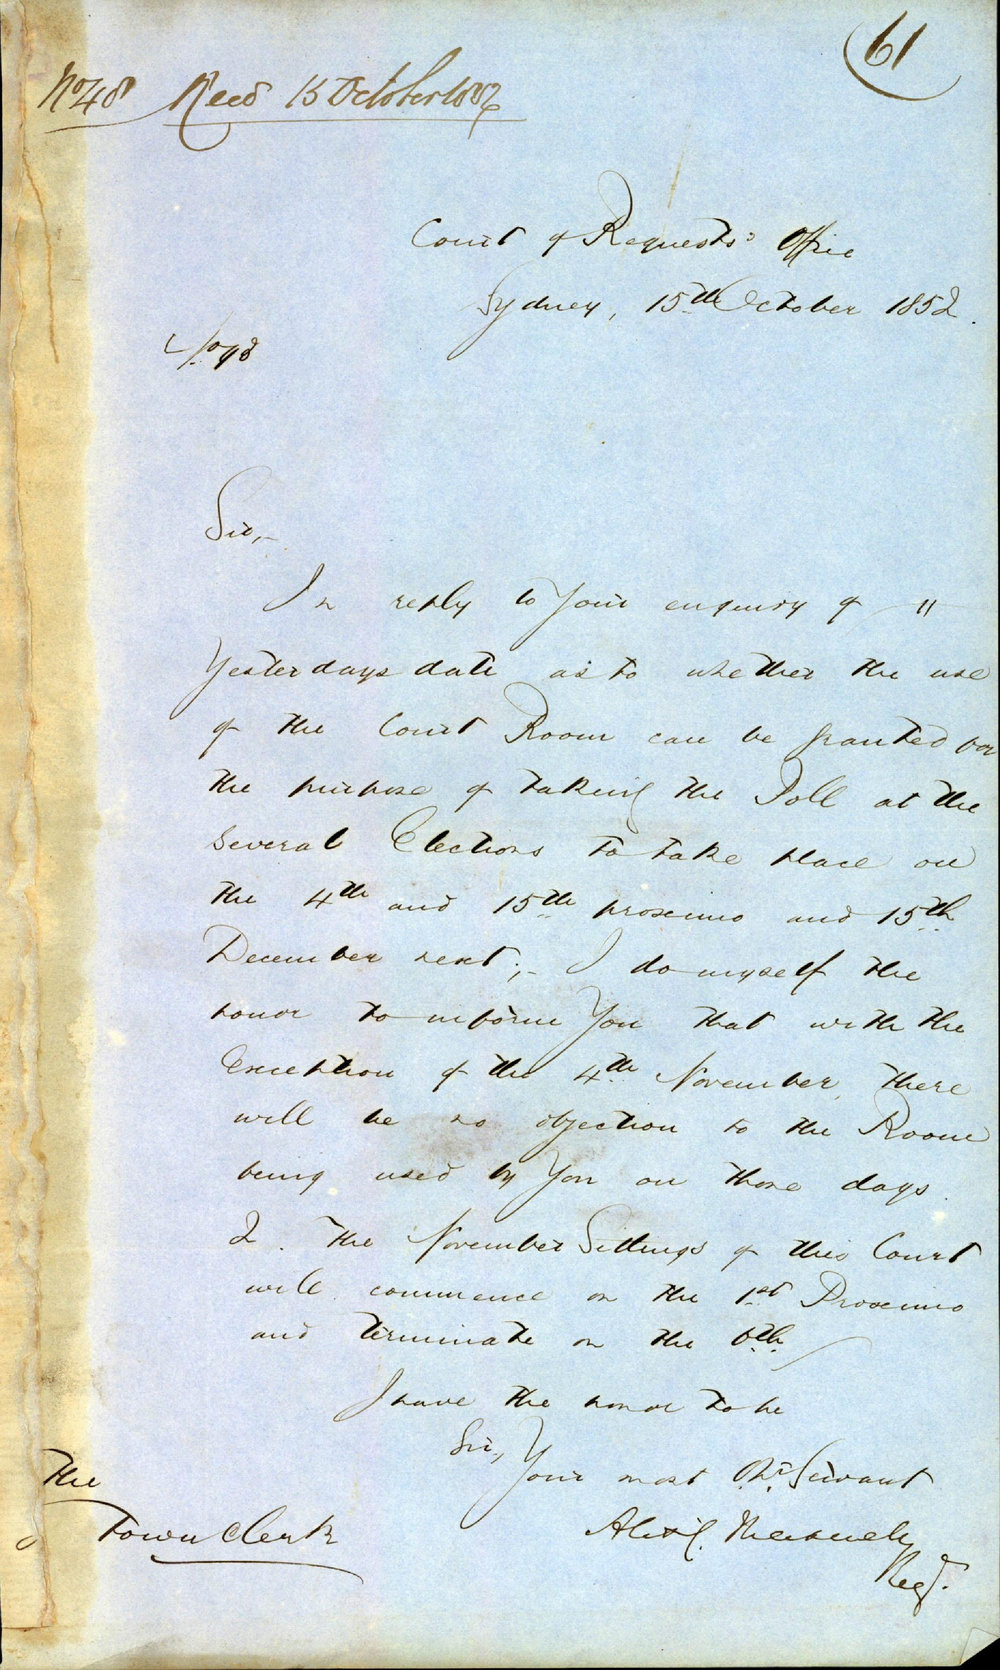 61
No 48 Recd 15 October 1852
Court of Requests' Office
Sydney, 15th October 1852.
No 98
Sir,-
In reply to Your enquiry of "
Yesterdays date as to whether the use
of the Court Room can be granted for
the purpose of taking the Poll at the
several Elections to take place on
the 4th and 15th proximo and 15th
December next;- I do myself the
honor to inform You that with the
Exception of the 4th November, there
will be no objection to the Room
being used by You on those days.
2. The November Sittings of this Court
will commence on the 1st Proximo
and terminate on the 6th.
I have the honor to be
Sir,
Your most Obt. Servant
Regr.
The
Town Clerk